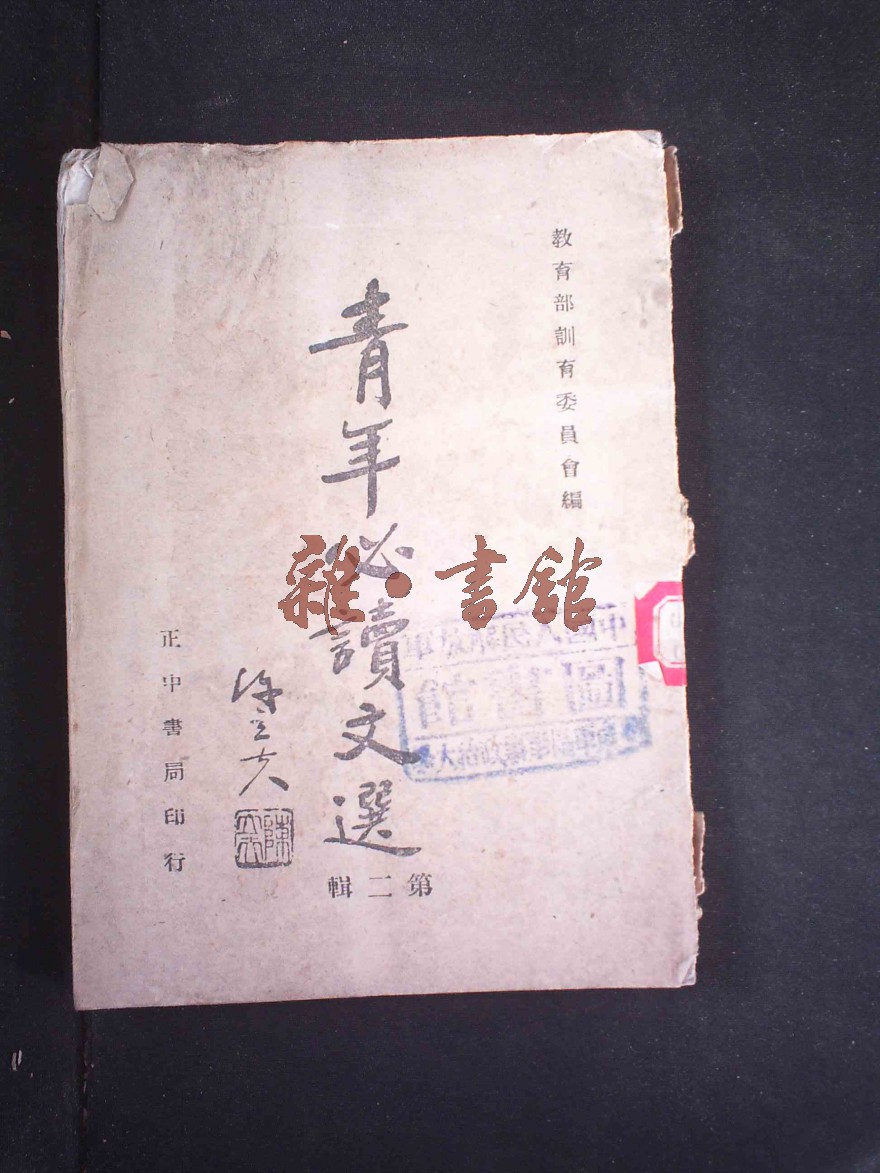 教育部訓育委員會編
青年必讀文選
第二輯
陳立夫
正中書局印行
雜·書館
圖書館